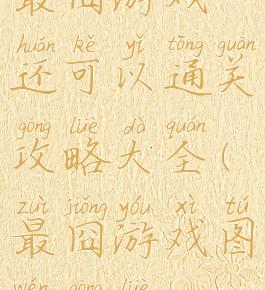 最囧游戏
huán kě yǐ tōng guān
还可以通关
gōng lüè dà quán
攻略大全(
zuì jiǒng yóu xì tú
最囧游戏图
wén gōng lüè